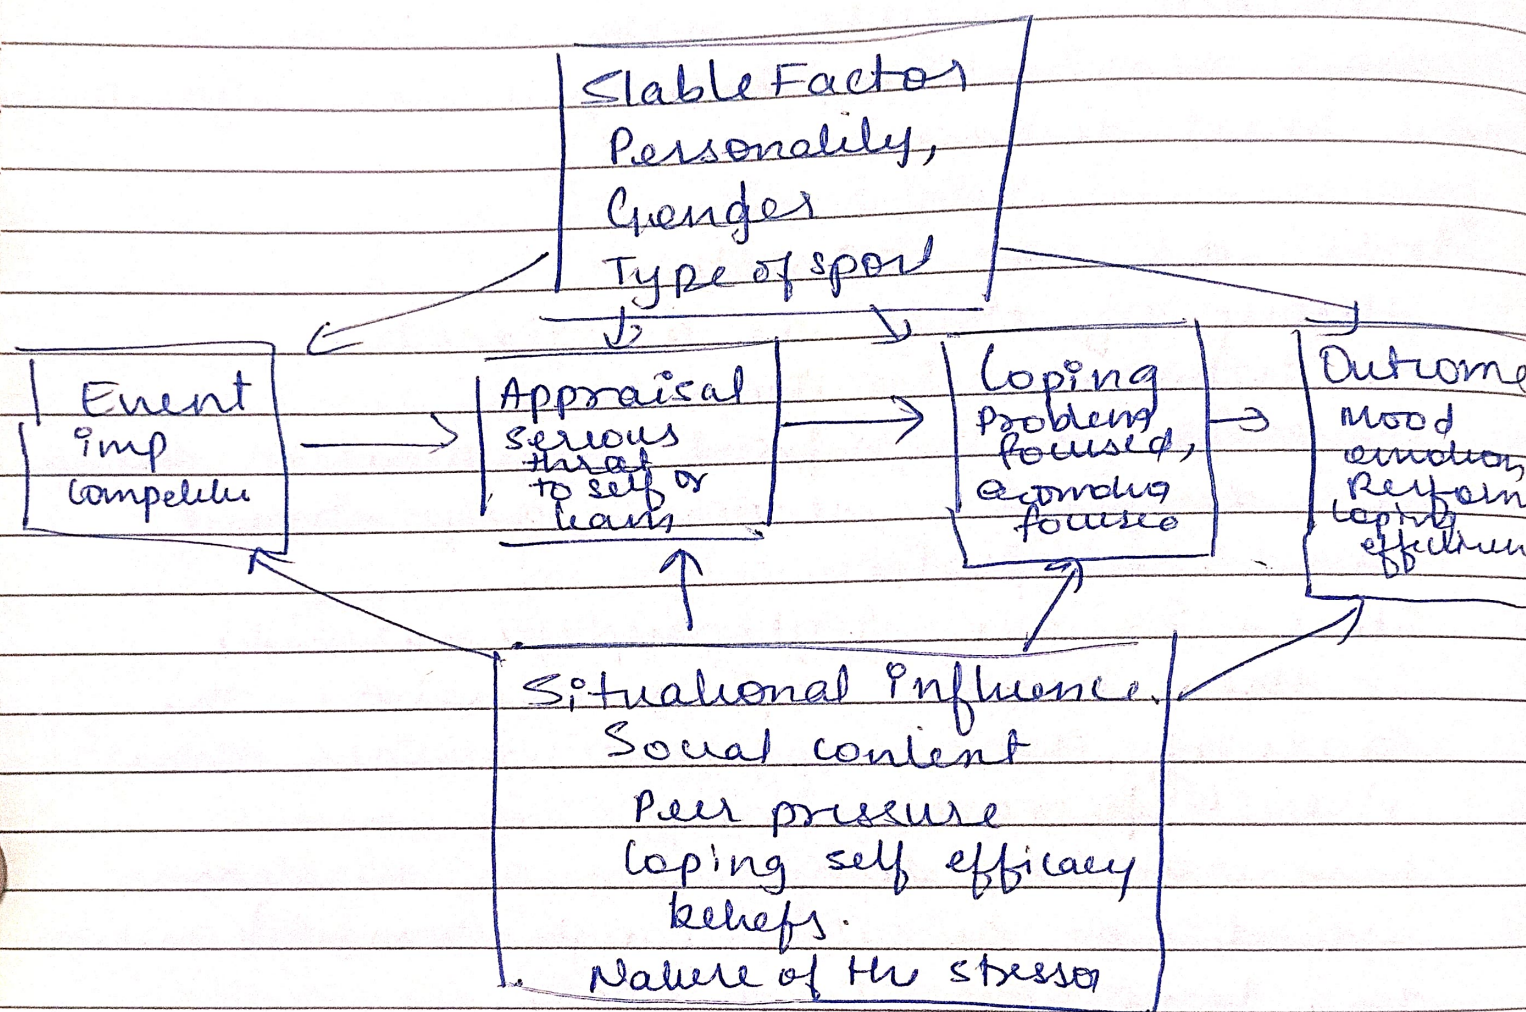 Stable Factor
Personality,
Gender
Type of sport
Event
imp
Appraisal
serious
threat
to self or
team
Coping
Problem
focused,
focused
Outcome
Mood
emotion
Perform
Coping
Situational influence.
Social content
Peer pressure
Coping self efficacy
beliefs.
Nature of the stressor